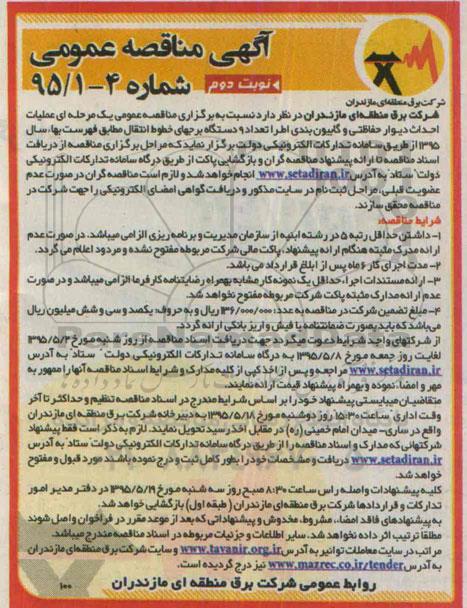 آگهی مناقصه عمومی
نوبت دوم
شماره ۴-۹۵/۱
شرکت برق منطقه‌ای مازندران
شرکت برق منطقه‌ای مازندران در نظر دارد نسبت به برگزاری مناقصه عمومی یک مرحله ای عملیات
احداث دیوار حفاظتی و گابیون بندی اطراف تعداد ۹ دستگاه برجهای خطوط انتقال مطابق فهرست بها، سال
۱۳۹۵ از طریق سامانه تدارکات الکترونیکی دولت برگزار نماید که مراحل برگزاری مناقصه از دریافت
اسناد مناقصه تا ارائه پیشنهاد مناقصه گران و بازگشایی پاکت از طریق درگاه سامانه تدارکات الکترونیکی
دولت ستاد به آدرس www.setadiran.ir انجام خواهد شد و لازم است مناقصه گران در صورت عدم
عضویت قبلی، مراحل ثبت نام در سایت مذکور و دریافت گواهی امضای الکترونیکی را جهت شرکت در
مناقصه محقق سازند.
شرایط مناقصه:
۱- داشتن حداقل رتبه ۵ در رشته ابنیه از سازمان مدیریت و برنامه ریزی الزامی میباشد. در صورت عدم
ارائه مدرک مثبته هنگام ارائه پیشنهاد، پاکت مالی شرکت مربوطه مفتوح نشده و مردود اعلام می گردد.
۲- مدت اجرای کار ۶ ماه پس از ابلاغ قرارداد می باشد.
۳- ارائه مستندات اجراء حداقل یک نمونه کار مشابه بهمراه رضایتنامه کارفرما الزامی میباشد و در صورت
عدم ارائه مدارک مثبته پاکت شرکت مربوطه مفتوح نخواهد شد.
۴- مبلغ تضمین شرکت در مناقصه به عدد: ۱۳۶/۰۰۰/۰۰۰ ریال و به حروف: یکصد و سی و شش میلیون ریال
می باشد که باید بصورت ضمانتنامه یا فیش واریز بانکی ارائه گردد.
از شرکتهای واجد شرایط دعوت میگردد جهت دریافت اسناد مناقصه از روز شنبه مورخ ۱۳۹۵/۵/۲
لغایت روز جمعه مورخ ۱۳۹۵/۵/۸ به درگاه سامانه تدارکات الکترونیکی دولت ستاد به آدرس
www.setadiran.ir مراجعه و پس از اخذ کپی از کلیه مدارک و شرایط اسناد مناقصه آنها را ممهور به
مهر و امضا، نموده و بهمراه پیشنهاد قیمت ارائه نمایند.
متقاضیان میبایستی پیشنهاد خود را بر اساس شرایط مندرج در اسناد مناقصه تنظیم و حداکثر تا آخر
وقت اداری ساعت ۱۵:۳۰ روز دوشنبه مورخ ۱۳۹۵/۵/۱۸ به دبیرخانه شرکت برق منطقه ای مازندران
واقع در ساری- میدان امام خمینی (ره) در مقابل اخذ رسید تحویل نمایند. لازم به ذکر است فقط پیشنهاد
شرکتهائی که مدارک و اسناد مناقصه را از طریق درگاه سامانه تدارکات الکترونیکی دولت ستاد به آدرس
www.setadiran.ir دریافت و مشخصات خود را بطور کامل ثبت و درج نموده باشند مورد قبول و مفتوح
خواهد شد.
کلیه پیشنهادات واصله راس ساعت ۸:۳۰ صبح روز سه شنبه مورخ ۱۳۹۵/۵/۱۹ در دفتر مدیر امور
تدارکات و قراردادها شرکت برق منطقه‌ای مازندران (طبقه اول) بازگشایی خواهد شد.
به پیشنهادهای فاقد امضاء، مشروط، مخدوش و پیشنهاداتی که بعد از موعد مقرر در فراخوان واصل شوند
مطلقا ترتیب اثر داده نخواهد شد. سایر اطلاعات و جزئیات مربوطه در اسناد مناقصه مندرج میباشد.
مراتب در سایت معاملات توانیر به آدرس www.tavanir.org.ir و سایت شرکت برق منطقه‌ای مازندران
به آدرس www.mazrec.co.ir/tender نیز درج گردیده است.
روابط عمومی شرکت برق منطقه ای مازندران
۱۰۰